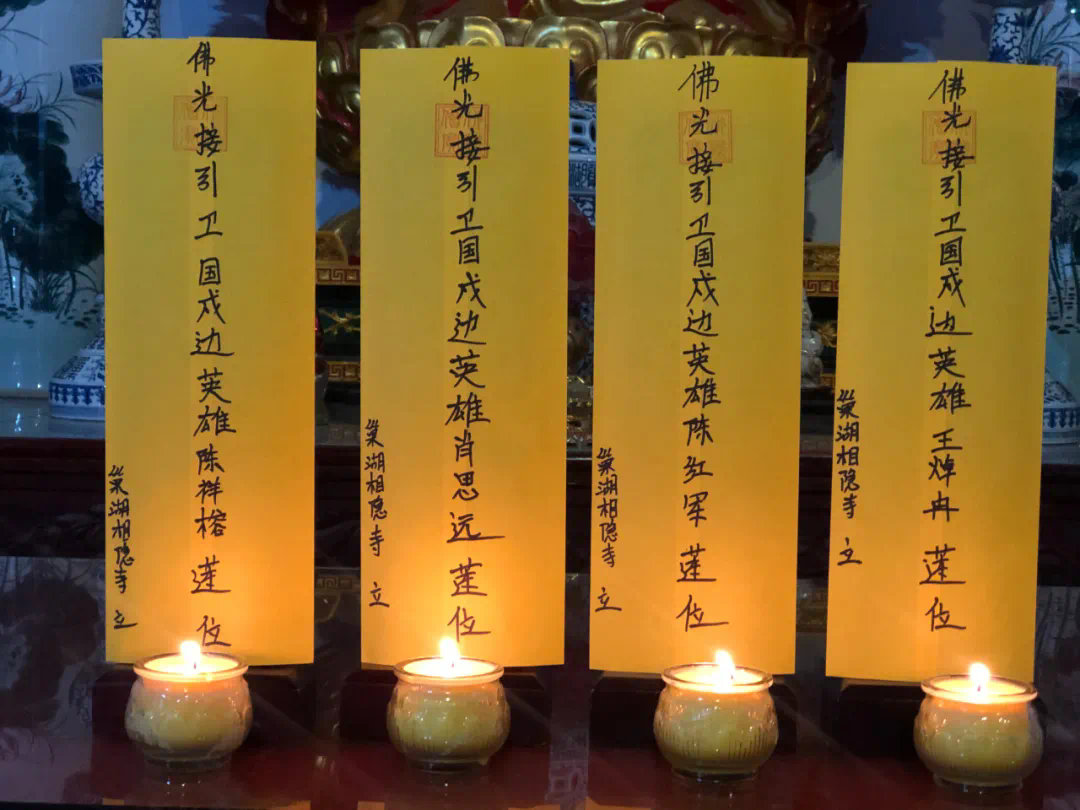 佛光接引卫国戍边英雄陈祥榕莲位
巢湖相隐寺立
佛光接引卫国戍边英雄肖思远莲位
巢湖相隐寺立
佛光接引卫国戍边英雄陈红军莲位
巢湖相隐寺立
佛光接引卫国戍边英雄王焯冉莲位
巢湖相隐寺立